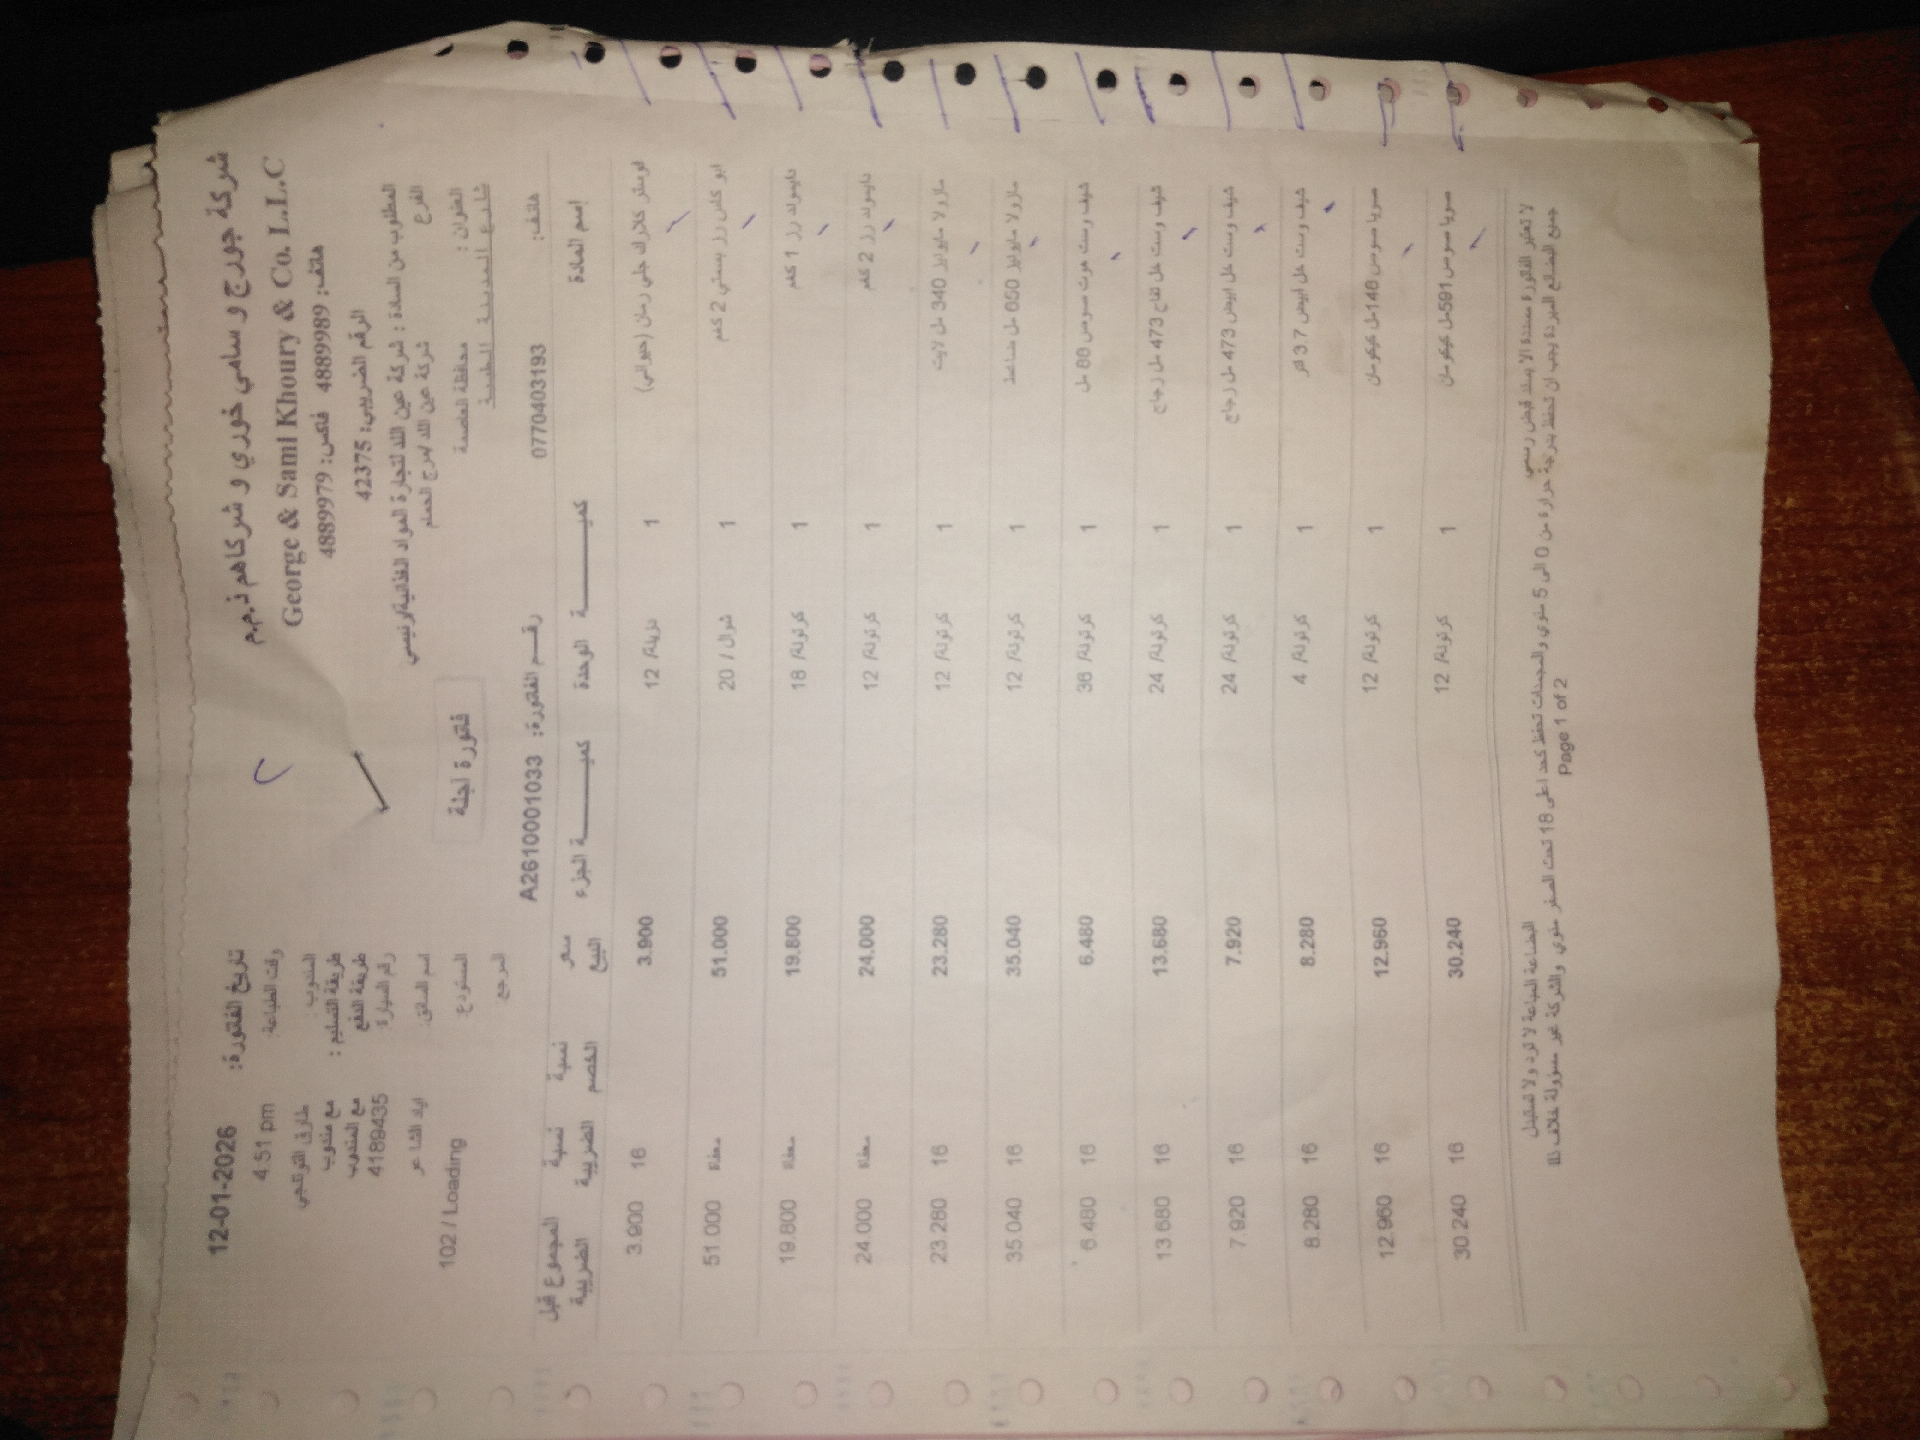 شركة جورج و سامي خوري و شركاهم ذ.م.م
George & Sami Khoury & Co. L.L.C
هاتف: 4889989 فاكس: 4889979
الرقم الضريبي: 42375
تاريخ الفاتورة: 12-01-2026
وقت الطباعة: 4:51 pm
المندوب:
طريقة التسليم: مع مندوب
طريقة الدفع مع المندوب
رقم السيارة: 4189435
اسم السائق: اياد الشاعر
المستودع: 102 / Loading
المرجع
المطلوب من السادة : شركة عين اللد لتجارة المواد الغذائية/رئيسي
الفرع شركة عين اللد /مرج الحمام
العنوان : محافظة العاصمة
شارع المدينة الطبية
فاتورة آجلة
هاتف: 0770403193 رقم الفاتورة: A2610001033
إسم المادة كمية الوحدة كمية الجزء سعر البيع نسبة الخصم نسبة الضريبة المجموع قبل الضريبة
فوستر كلارك جلي رمان (حيواني) 1 دزينة/ 12 3.900 16 3.900
ابو كاس رز بسمتي 2 كغم 1 شوال / 20 51.000 معفاة 51.000
تايسونه رز 1 كغم 1 كرتونة/ 18 19.800 معفاة 19.800
تايسونه رز 2 كغم 1 كرتونة/ 12 24.000 معفاة 24.000
مازولا مايونيز 340 مل لايت 1 كرتونة/ 12 23.280 16 23.280
مازولا مايونيز 650 مل ضاغط 1 كرتونة/ 12 35.040 16 35.040
شيف وست هوت صوص 88 مل 1 كرتونة/ 36 6.480 16 6.480
شيف وست خل تفاح 473 مل زجاج 1 كرتونة/ 24 13.680 16 13.680
شيف وست خل ابيض 473 مل زجاج 1 كرتونة/ 24 7.920 16 7.920
شيف وست خل ابيض 3.7 لتر 1 كرتونة/ 4 8.280 16 8.280
صويا صوص 148مل كيكومان 1 كرتونة/ 12 12.960 16 12.960
صويا صوص 591مل كيكومان 1 كرتونة/ 12 30.240 16 30.240
لا تعتبر الفاتورة مسددة الا بسند قبض رسمي
البضاعة المباعة لا ترد ولا تستبدل
جميع البضائع المبردة يجب ان تحفظ بدرجة حرارة من 0 الى 5 مئوي والمجمدات تحفظ كحد اعلى 18 تحت الصفر مئوي والشركة غير مسؤولة خلاف ذلك
Page 1 of 2